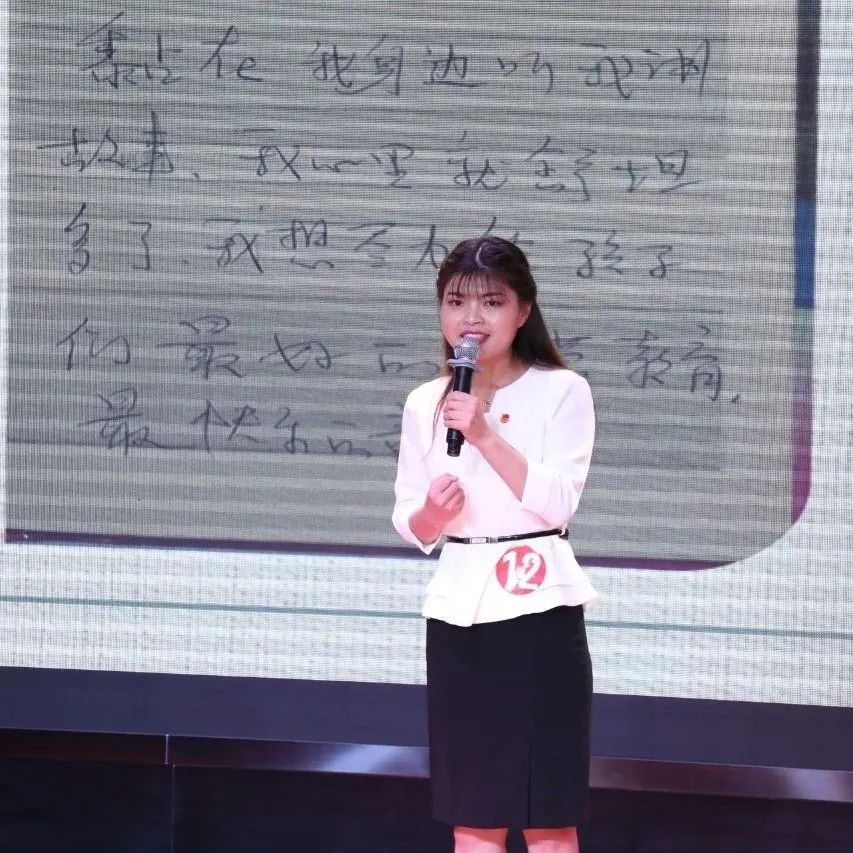 黏在我身边听我讲
故事、我心里就舒坦
多了、我想 孩子
们最好的 教育，
最快乐的
12